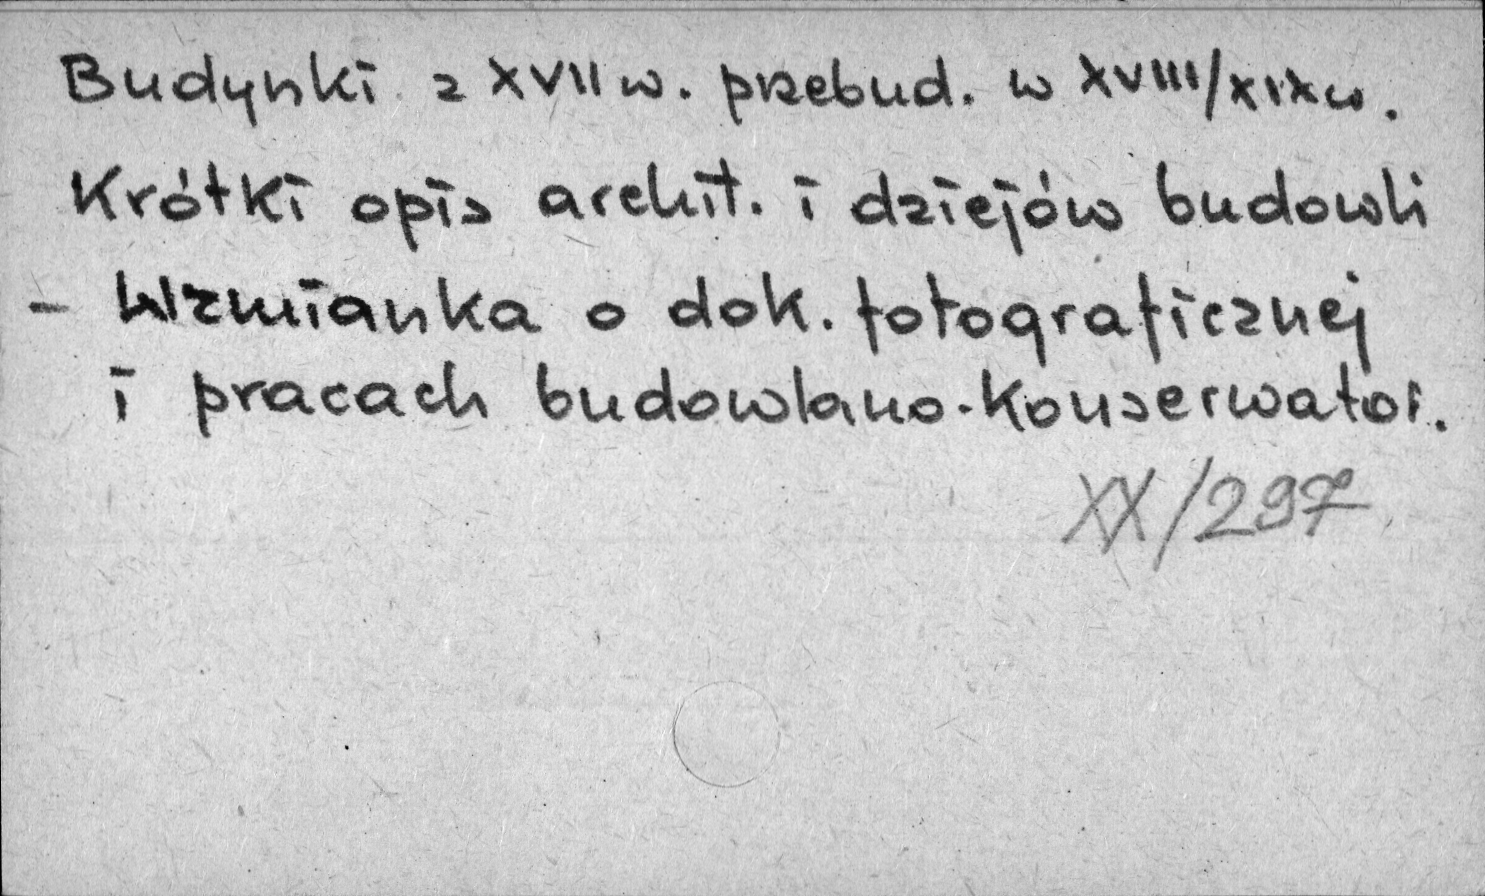 Budynki z XVII w. przebud. w XVIII/XIX w.
Krótki opis archit. i dziejów budowli
- Wzmianka o dok. fotograficznej
i pracach budowlano-konserwator.
XX/297